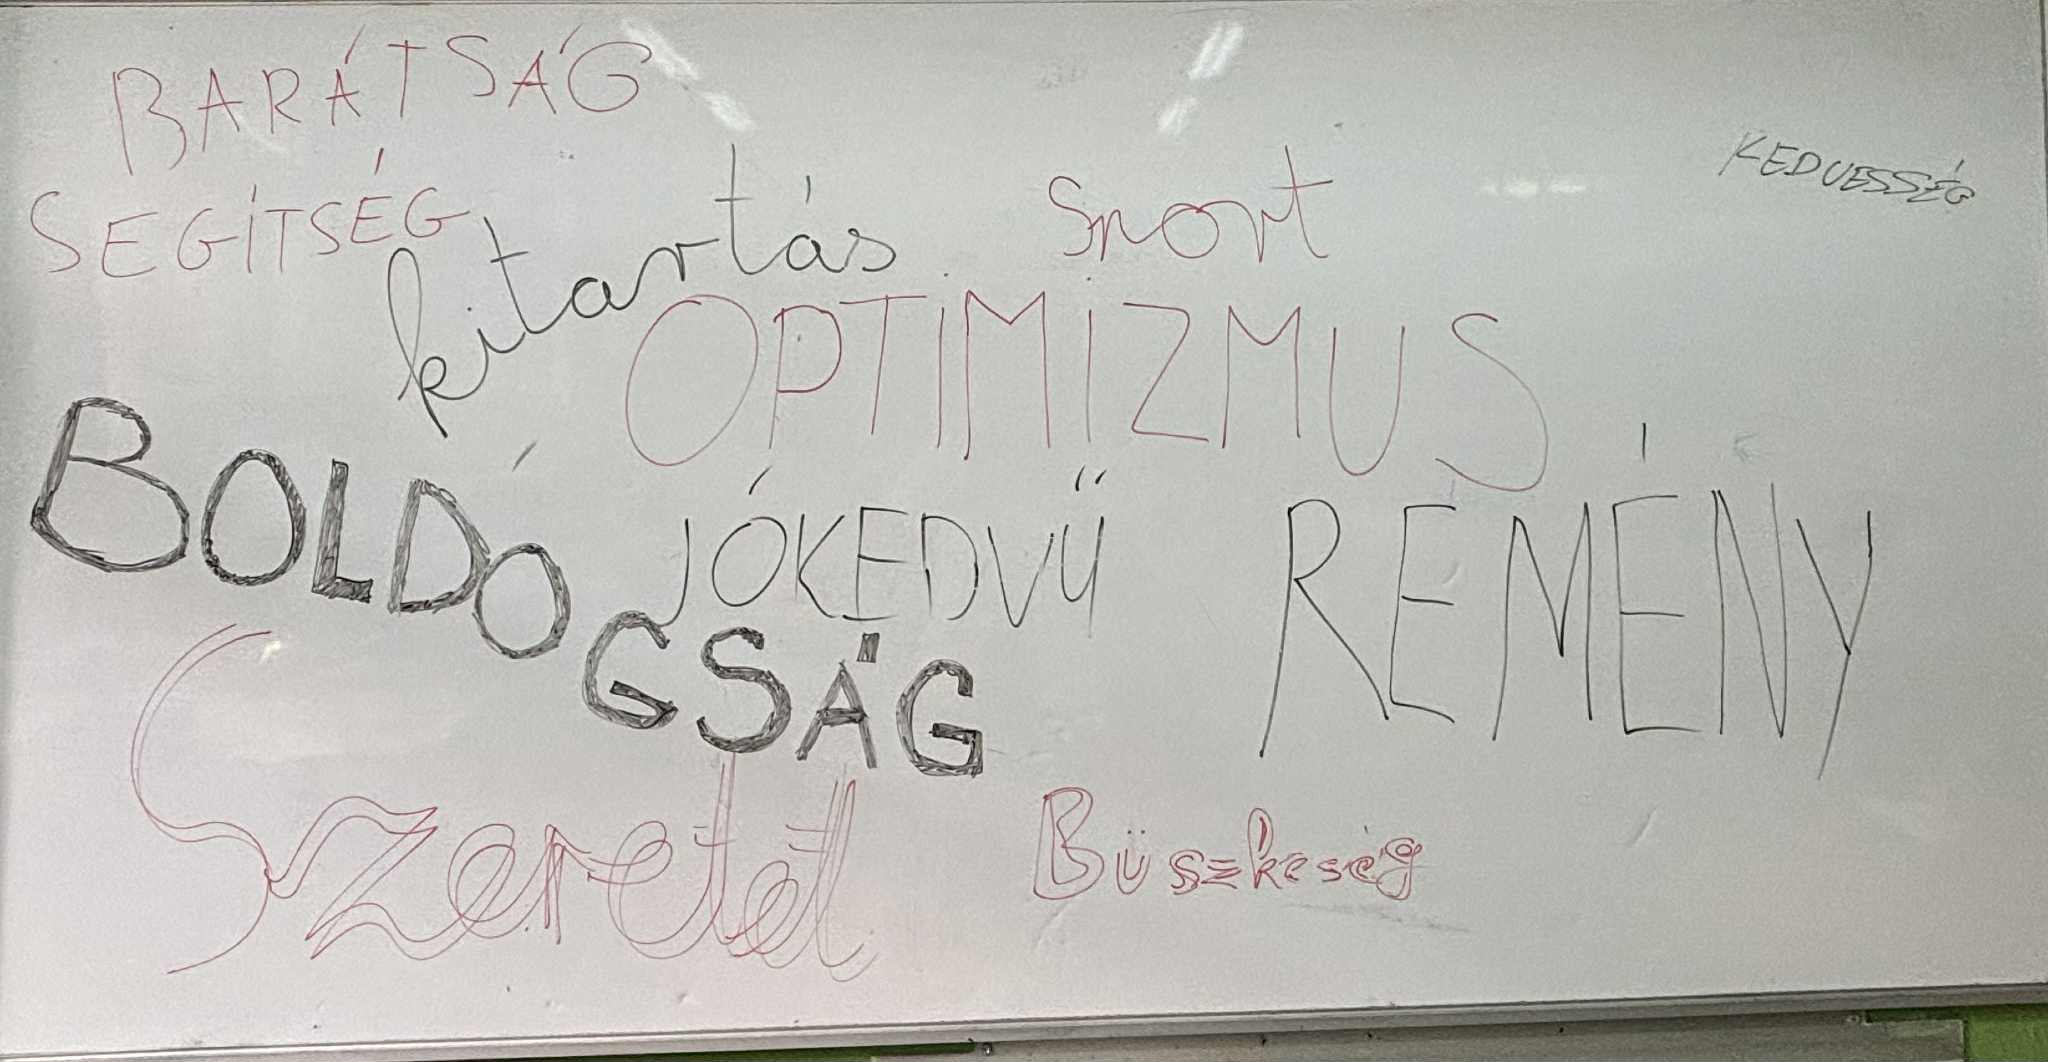 BARÁTSÁG
SEGÍTSÉG
kitartás
Sport
KEDVESSÉG
OPTIMIZMUS
BOLDOGSÁG
JÓKEDVŰ
REMÉNY
Szeretet
Büszkeség